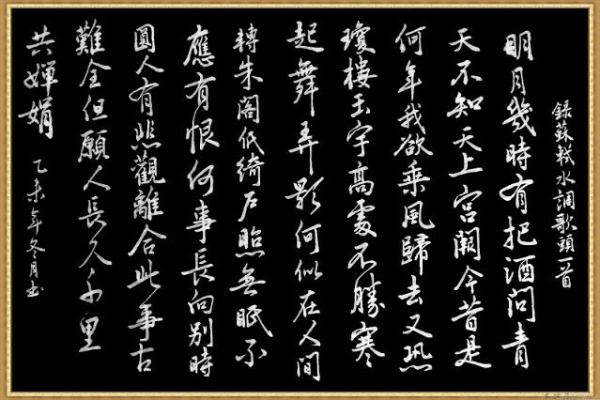 録蘇軾水調歌頭一首
明月幾時有把酒问青
天不知天上宫闕今昔是
何年我欲乘風歸去又恐
瓊樓玉宇高處不勝寒
起舞弄影何似在人间
轉朱阁低綺户照無眠不
應有恨何事長向别時
圓人有悲觀離合此事古
難全但願人長久千里
共嬋娟
乙未年冬月书